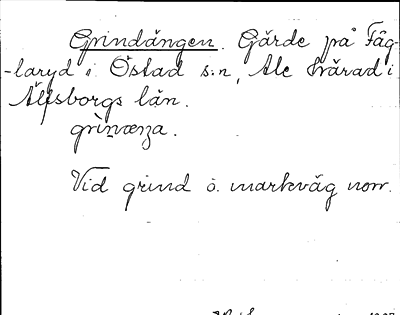 Grindängen. Gärde på Fäg-
-laryd i Östad s:n, Ale härad i
Älfsborgs län.
grìnæŋa.
Vid grind o. markväg norr.